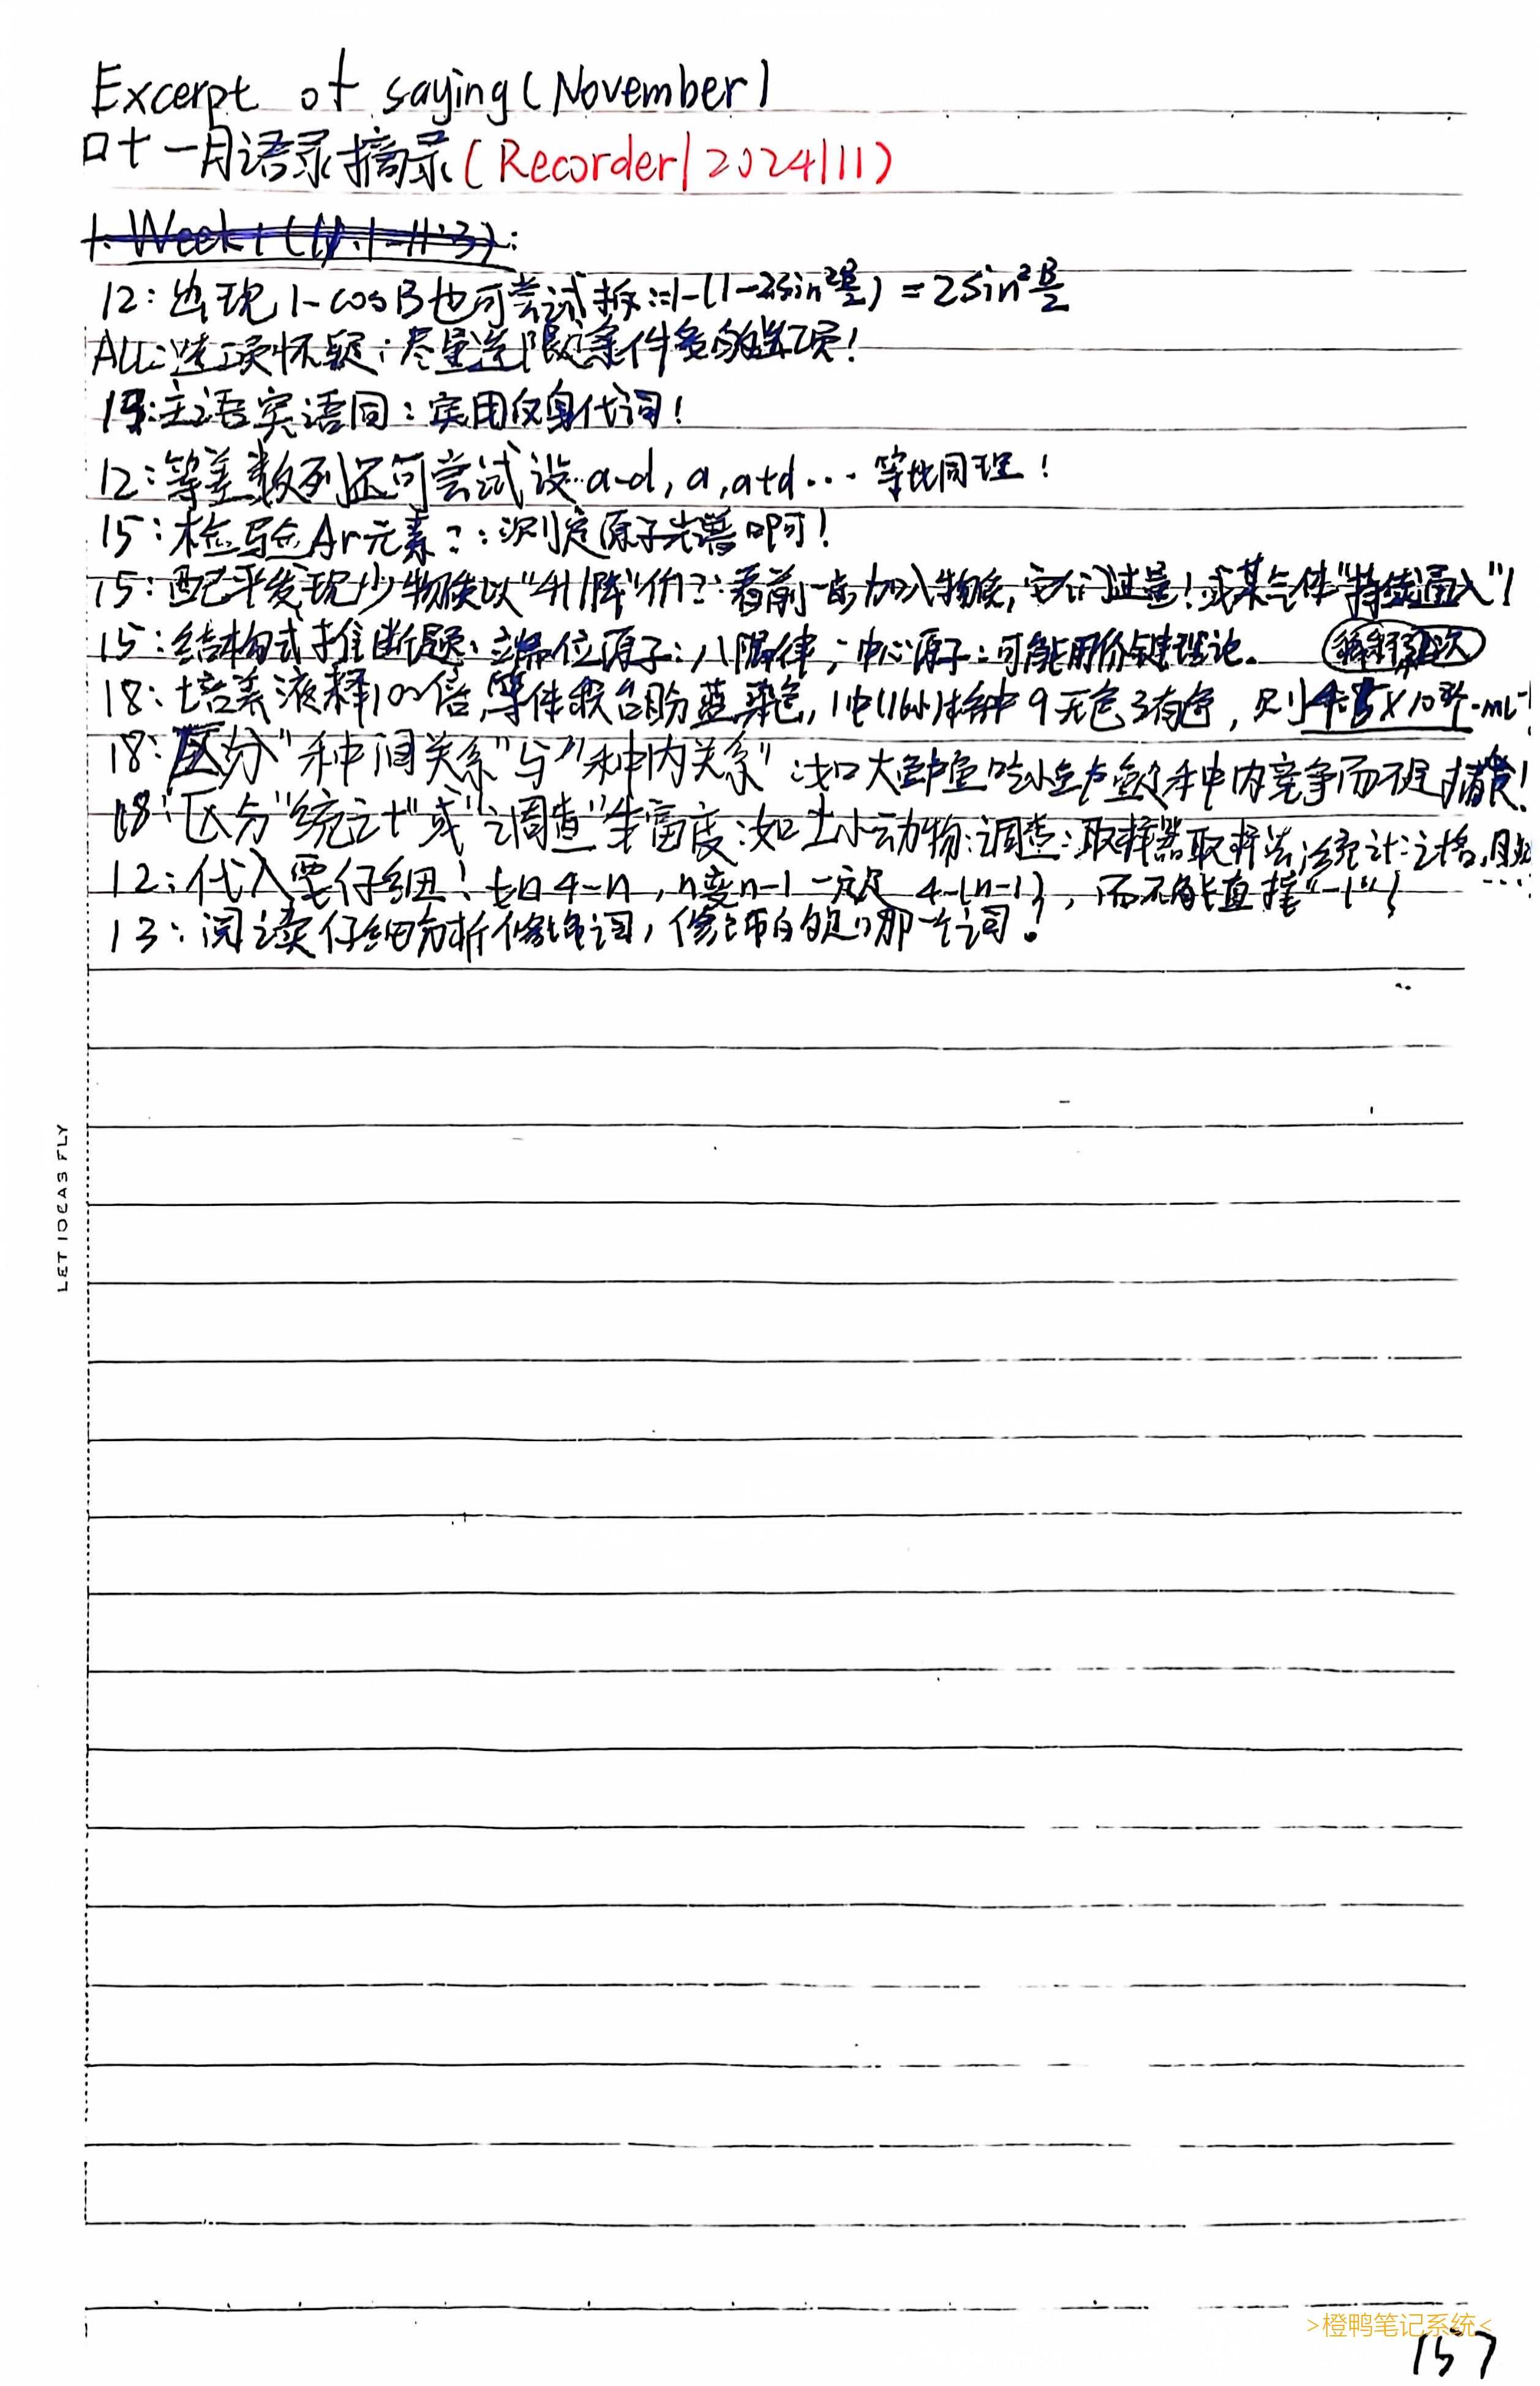 Excerpt of saying (November)
口十一月语录摘录(Recorder|2024|11)
1. Week 1 (11.1-11.3):
12:出现1-cosB也可尝试拆:=1-(1-2sin²B/2)=2sin²B/2
ALL:选项怀疑:尽量选限定条件多的选项!
13:主语宾语同:宾用反身代词!
12:等差数列还可尝试设:a-d, a, a+d… 等比同理!
15:检验Ar元素?:测定原子光谱即可!
15:配平发现少物质以"升/降"价?:看前一步加入物质,它们过量!或某气体"持续通入"!
15:结构式推断题:端位原子:八隅律;中心原子:可能用价键理论.
18:培养液释100倍,等体积台盼蓝染色,1中(16小)格中9无色3有色,则
18:区分"种间关系"与"种内关系":如大鱼吃小鱼 种内竞争而不是捕食!
18:区分"统计"或"调查"丰富度:如土小动物:调查:取样器取样法;统计:记名,目
12:代入要仔细!如4-n,n变n-1一定是4-(n-1),而不能直接"-1"!
13:阅读仔细分析修饰词,修饰的是哪一个词!
LET IDEAS FLY
>橙鸭笔记系统<
157